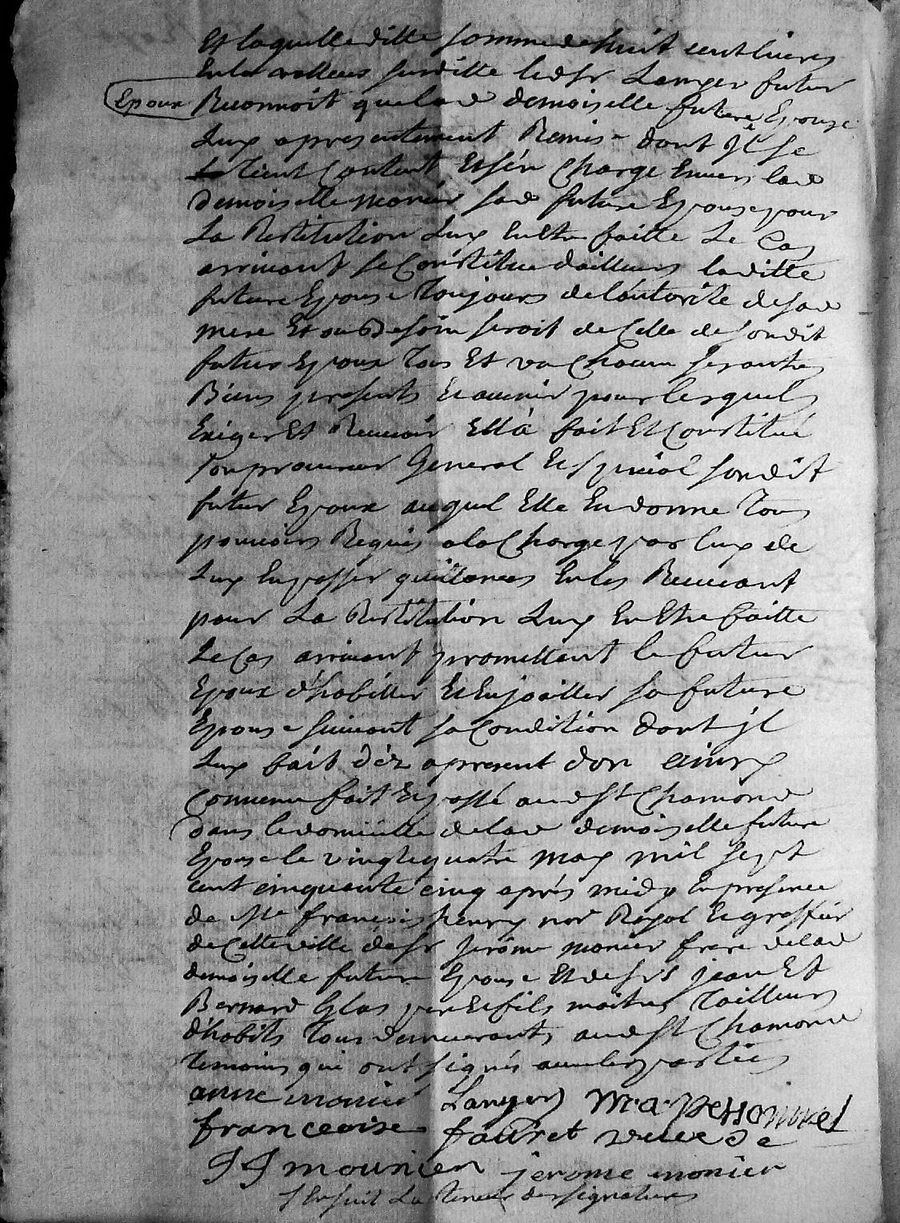 Et laquelle ditte somme de huit cent livres
En la valleur susditte led sr Langer futur
Epoux Reconnoit que lad demoiselle future Epouse
Luy apresentement Remis dont Jl se
tient Contant Et sén Charge Envers lad
demoiselle monier sad future Epouse pour
La Restitution Luy En Etre faitte Le Cas
arrivant se Constitue dailleurs laditte
future Epouse Toujours de lautorité de sad
mere Et ou Besoin seroit de Celle de sondit
futur Epoux Tous Et un Chacun ses autres
Biens presents Et avenir pour lesquels
Exiger Et Recevoir Ella fait Et Constitué
son procureur General Et special sondit
futur Epoux auquel Elle En donne Tous
pouvoirs Requis a la Charge par luy de
Luy En passer quittances En les Recevant
pour La Restitution Luy En Etre faitte
Le Cas arrivant promettant le futur
Epoux d'habiller Et Enjoailler sa future
Epouse suivant sa Condition dont jl
Luy fait déz apresent don ainsy
Convenu fait Et passé aud St Chamond
dans le domicille de lad demoiselle future
Epouse le vingtquatre may mil sept
cent cinquante cinq aprés midy En presence
de Me françois henry nore Royal Et greffier
de Cette ville de sr Jerôme monier frere de lad
demoiselle future Epouse Et de srs jean Et
Bernard Glas pere Et fils maitres Tailleurs
d'habits Tous demeurants aud St Chamond
temoins qui ont signés avec les parties
anne monier Langer
francoise fauret veuve de
mounier jerome monier
s Ensuit La Teneur des signatures